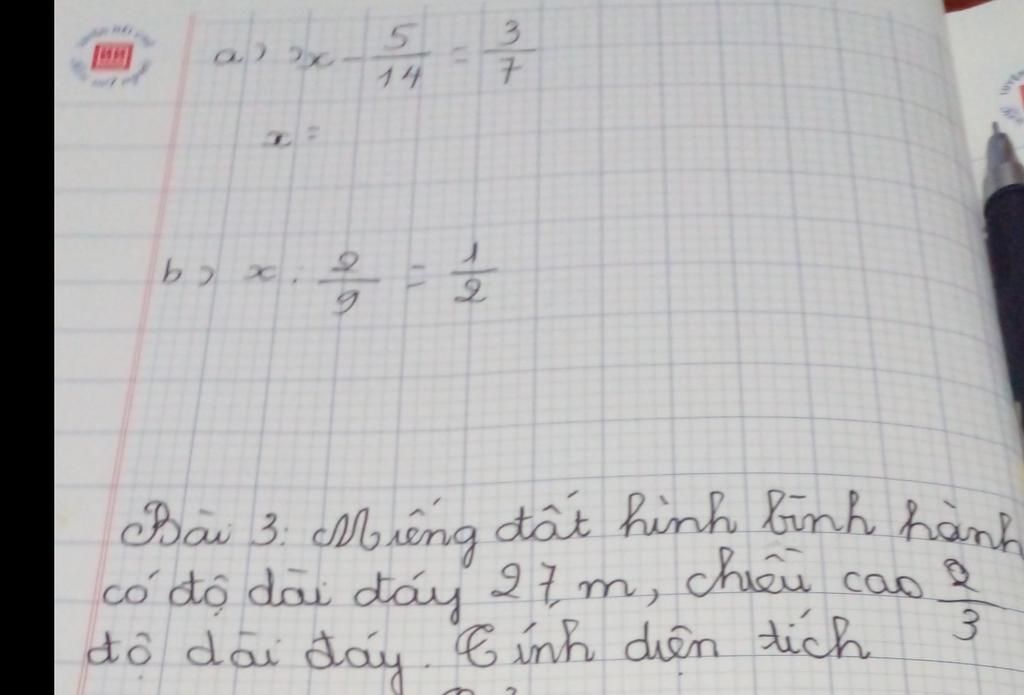 a) x - 5/14 = 3/7
x =
b) x : 2/9 = 1/2
Bài 3: Miếng đất hình bình hành
có độ dài đáy 27 m, chiều cao 2/3
độ dài đáy. Tính diện tích